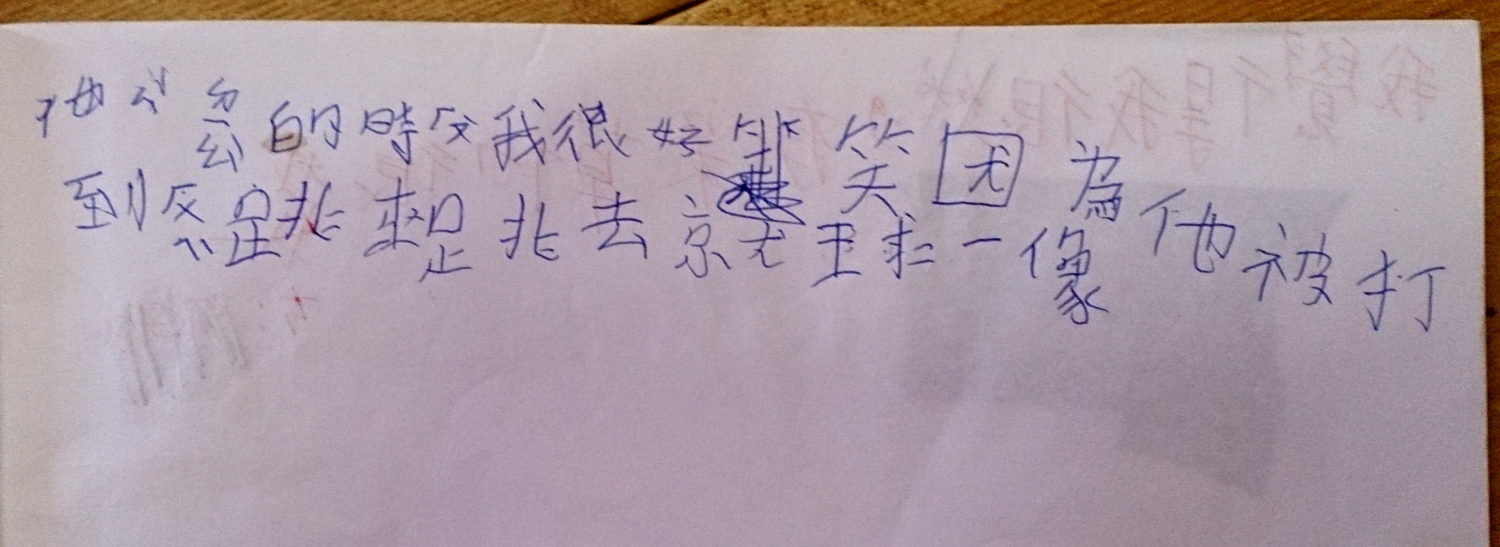 他公的時我很好笑因為他被打
到跳來跳去就球一像